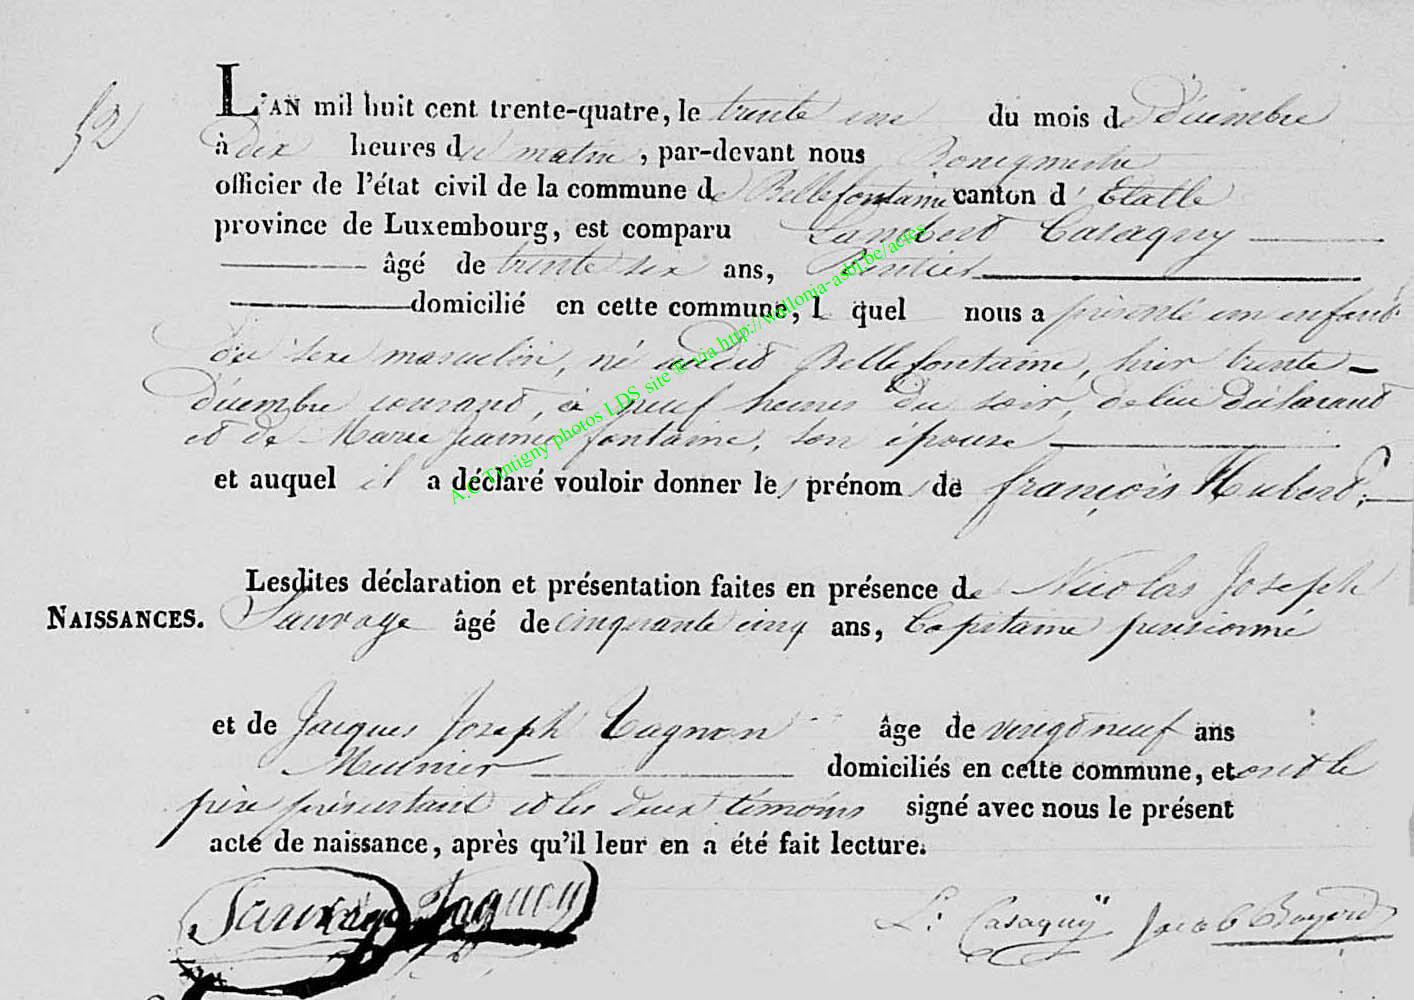 52
L'AN mil huit cent trente-quatre, le trente un du mois de décembre
à dix heures du matin, par-devant nous Bourgmestre
officier de l'état civil de la commune de Bellefontaine canton d'Etalle
province de Luxembourg, est comparu Lambert Casaquy
âgé de trente six ans, Rentier
domicilié en cette commune, lequel nous a présenté un enfant
du sexe masculin, né audit Bellefontaine, hier trente
décembre courant, à neuf heures du soir, de lui déclarant
et de Marie Jeanne fontaine, son épouse
et auquel il a déclaré vouloir donner les prénoms de françois Hubert.
Lesdites déclaration et présentation faites en présence de Nicolas Joseph
NAISSANCES. Sauvage âgé de cinquante cinq ans, Capitaine pensionné
et de Jacques Joseph Tagnon âge de vingt neuf ans
Meunier domiciliés en cette commune, et ont le
père présentant et les deux témoins signé avec nous le présent
acte de naissance, après qu'il leur en a été fait lecture.
Sauvage Tagnon L: Casaquÿ Jacob
A.C Tintigny photos LDS site ® via http://wallonia-asbl.be/actes